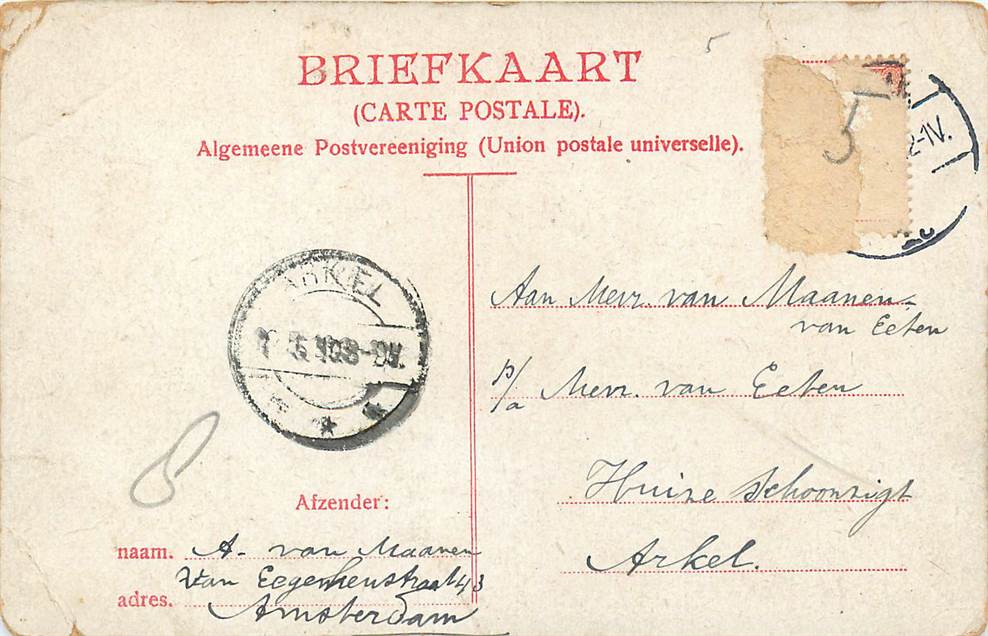 5
BRIEFKAART
(CARTE POSTALE).
Algemeene Postvereeniging (Union postale universelle).
5
2-1V.
ARKEL
8-9V.
Aan Mevr. van Maanen-
van Eeten
p/a Mevr. van Eeten
Huize Schoonzigt
Arkel.
8
Afzender:
naam. A. van Maanen
Van Eeghenstraat 43
adres. Amsterdam